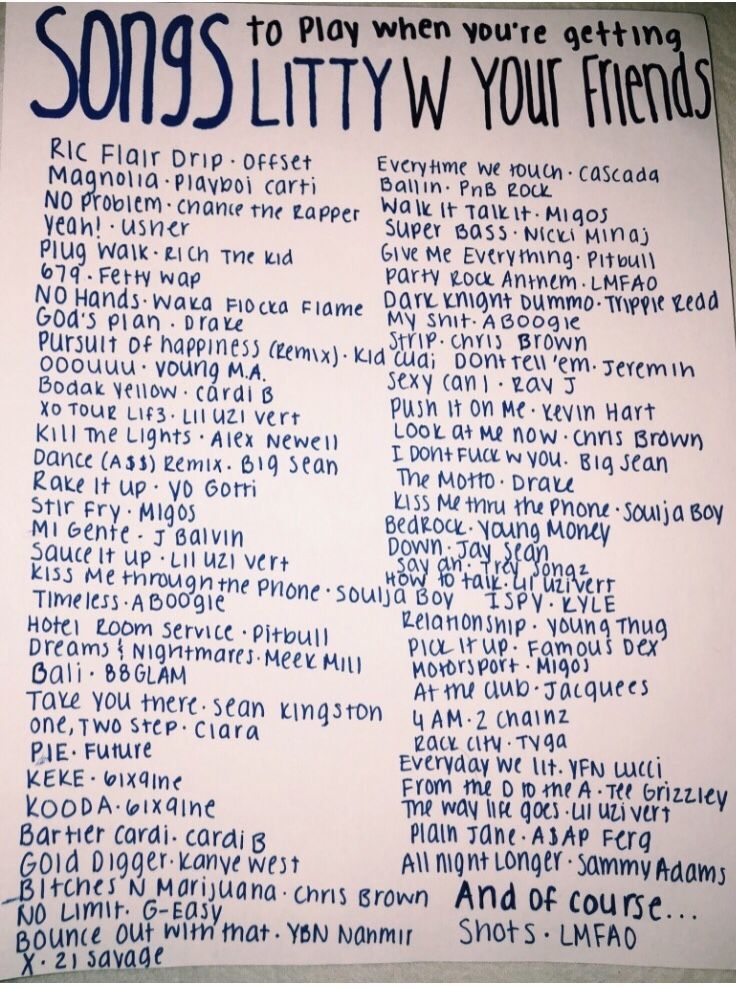 Songs to Play when you're getting
LITTY W Your Friends
RIC Flair Drip · Offset
Magnolia · Playboi carti
NO Problem · Chance the Rapper
Yeah! · usher
Plug Walk · Rich The Kid
679 · Fetty Wap
NO Hands · Waka Flocka Flame
God's Plan · Drake
Pursuit of happiness (Remix) · Kid Cudi
OOOUUU · Young M.A.
Bodak Yellow · Cardi B
XO TOUR Lif3 · Lil UZI vert
Kill The Lights · Alex Newell
Dance (A$$) Remix · Big Sean
Rake It up · YO Gotti
Stir Fry · Migos
Mi Gente · J Balvin
Sauce It up · Lil UZI vert
Kiss Me through the Phone · Soulja Boy
Timeless · A Boogie
Hotel Room Service · Pitbull
Dreams & Nightmares · Meek Mill
Bali · 88GLAM
Take you there · Sean Kingston
one, TWO Step · Ciara
PIE · Future
KEKE · 6ix9ine
KOODA · 6ix9ine
Bartier Cardi · cardi B
Gold Digger · Kanye West
BItches N Marijuana · Chris Brown
NO Limit · G-Easy
Bounce Out With that · YBN Nahmir
X · 21 Savage
Everytime we touch · Cascada
Ballin · PnB ROCK
Walk It Talk It · Migos
Super Bass · Nicki Minaj
Give Me Everything · Pitbull
Party Rock Anthem · LMFAO
Dark Knight Dummo · Trippie Redd
My Shit · A BOOgie
Strip · Chris Brown
Dont tell 'em · Jeremih
Sexy Can I · Ray J
Push It On Me · Kevin Hart
Look at Me now · Chris Brown
I Dont Fuck w you · Big Sean
The Motto · Drake
Kiss Me thru the Phone · Soulja Boy
BedROCK · Young Money
Down · Jay Sean
Say ah · Trey Songz
How to talk · Lil uzi vert
ISPY · KYLE
Relationship · Young Thug
Pick It up · Famous Dex
Motorsport · Migos
At the club · Jacquees
4 AM · 2 Chainz
Rack City · Tyga
Everyday We lit · YFN Lucci
From the D to the A · Tee Grizzley
The way life goes · Lil uzi vert
Plain Jane · A$AP Ferg
All night Longer · Sammy Adams
And of course...
Shots · LMFAO